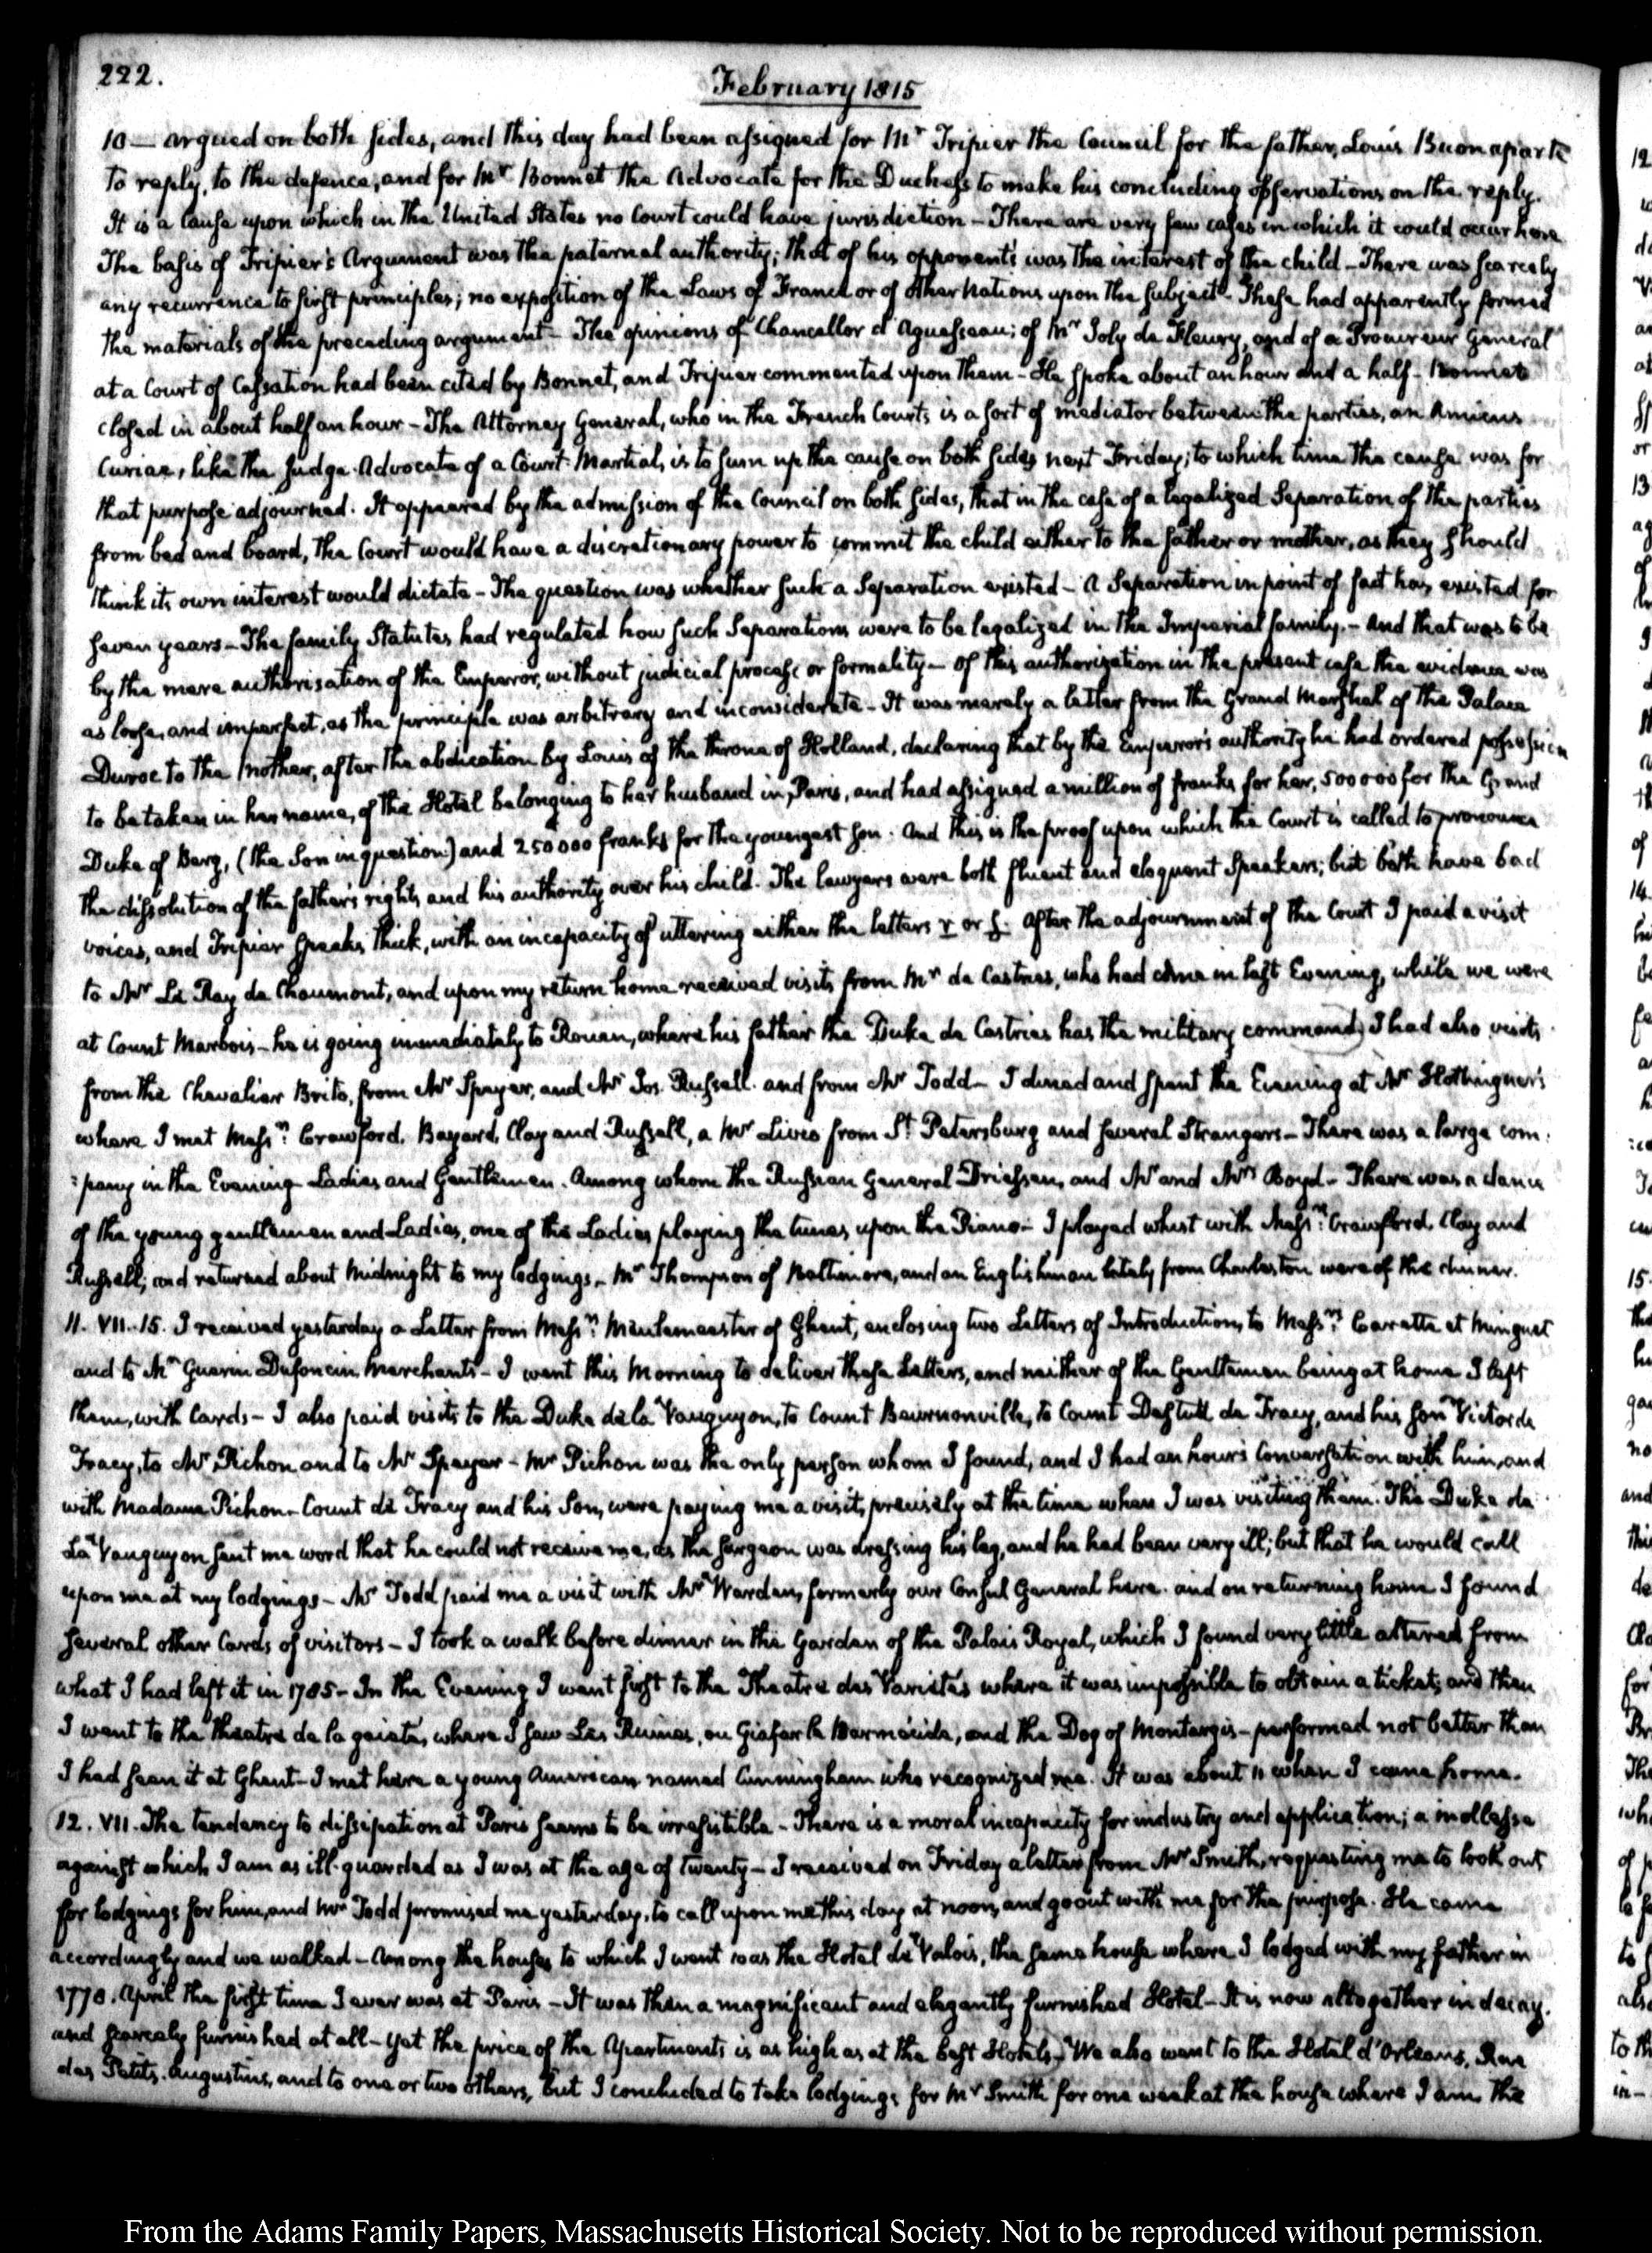 222.
February 1815
10 — argued on both sides, and this day had been assigned for Mr Tripier the Council for the father, Louis Buonaparte
to reply, to the defence, and for Mr Bonnet the Advocate for the Duchess to make his concluding observations on the reply.
It is a Cause upon which in the United States no Court could have jurisdiction – There are very few cases in which it could occur here
The basis of Tripier's Argument was the paternal authority; that of his opponent's was the interest of the child – There was scarcely
any recurrence to first principles; no exposition of the Laws of France or of other Nations upon the subject – These had apparently formed
the materials of the preceding argument – The opinions of Chancellor d'Aguesseau; of Mr Joly de Fleury, and of a Procureur General
at a Court of Cassation had been cited by Bonnet, and Tripier commented upon them – He spoke about an hour and a half – Bonnet
closed in about half an hour – The Attorney General, who in the French Courts is a sort of mediator between the parties, an Amicus
Curiae, like the Judge-Advocate of a Court-Martial, is to sum up the cause on both sides next Friday; to which time the cause was for
that purpose adjourned. It appeared by the admission of the Council on both sides, that in the case of a legalized Separation of the parties
from bed and board, the Court would have a discretionary power to commit the child either to the father or mother, as they should
think its own interest would dictate – The question was whether such a Separation existed – A Separation in point of fact has existed for
seven years – The family Statutes had regulated how such Separations were to be legalized in the Imperial family. – And that was to be
by the mere authorisation of the Emperor, without judicial process or formality – Of this authorization in the present case the evidence was
as loose, and imperfect, as the principle was arbitrary and inconsiderate – It was merely a letter from the Grand Marshal of the Palace
Duroc to the mother, after the abdication by Louis of the throne of Holland, declaring that by the Emperor's authority he had ordered possession
to be taken in her name, of the Hotel belonging to her husband in Paris, and had assigned a million of franks for her, 500000 for the Grand
Duke of Berg, (the Son in question) and 250000 franks for the youngest son. And this is the proof upon which the Court is called to pronounce
the dissolution of the father's rights and his authority over his child. The lawyers were both fluent and eloquent Speakers; but both have bad
voices, and Tripier speaks thick, with an incapacity of uttering either the letters r or s. After the adjournment of the Court I paid a visit
to Mr Le Ray de Chaumont, and upon my return home received visits from Mr de Castries, who had come in last Evening, while we were
at Count Marbois – he is going immediately to Rouen, where his father the Duke de Castries has the military command) I had also visits
from the Chevalier Brito, from Mr Speyer, and Mr Jos. Russell. and from Mr Todd – I dined and spent the Evening at Mr Hottinguer's
where I met Messrs Crawford, Bayard, Clay and Russell, a Mr Lives from St Petersburg and several Strangers – There was a large com:
:pany in the Evening Ladies and Gentlemen. Among whom the Russian General Driessen, and Mr and Mrs Boyd – There was a dance
of the young gentlemen and Ladies, one of the Ladies playing the tunes upon the Piano – I played whist with Messrs Crawford, Clay and
Russell; and returned about Midnight to my lodgings – Mr Thompson of Baltimore, and an Englishman lately from Charleston were of the dinner.
11. VII. 15. I received yesterday a Letter from Messrs Meulemeester of Ghent, enclosing two Letters of Introduction, to Messrs Caratte et Minguet
and to Mr Guerin Dufoncin Merchants – I went this Morning to deliver these Letters, and neither of the Gentlemen being at home I left
them, with Cards – I also paid visits to the Duke de la Vauguyon, to Count Beurnonville, to Count Destutt de Tracy, and his son Victor de
Tracy, to Mr Pichon and to Mr Speyer – Mr Pichon was the only person whom I found, and I had an hour's Conversation with him, and
with Madame Pichon – Count de Tracy and his Son, were paying me a visit, precisely at the time when I was visiting them. The Duke de
La Vauguyon sent me word that he could not receive me, as the surgeon was dressing his leg, and he had been very ill; but that he would call
upon me at my lodgings – Mr Todd paid me a visit with Mr Warden, formerly our Consul General here. and on returning home I found
several other Cards of visitors – I took a walk before dinner in the Garden of the Palais Royal, which I found very little altered from
what I had left it in 1785 – In the Evening I went first to the Theatre des Varietés where it was impossible to obtain a ticket; and then
I went to the theatre de la gaieté, where I saw Les Ruines, ou Giafar le Barmécide, and the Dog of Montargis – performed not better than
I had seen it at Ghent – I met here a young American named Cunningham who recognized me. It was about 11 when I came home.
12. VII. The tendency to dissipation at Paris seems to be irresistible – There is a moral incapacity for industry and application; a mollesse
against which I am as ill-guarded as I was at the age of twenty – I received on Friday a letter from Mr Smith, requesting me to look out
for lodgings for him, and Mr Todd promised me yesterday, to call upon me this day at noon, and go out with me for the purpose. He came
accordingly and we walked – Among the houses to which I went was the Hotel de Valois, the same house where I lodged with my father in
1778. April the first time I ever was at Paris – It was then a magnificent and elegantly furnished Hotel – It is now altogether in decay.
and scarcely furnished at all – yet the price of the Apartments is as high as at the best Hotels – We also went to the Hotel d'Orleans, Rue
des Petits. Augustins, and to one or two others, but I concluded to take lodgings for Mr Smith for one week at the house where I am. The
From the Adams Family Papers, Massachusetts Historical Society. Not to be reproduced without permission.